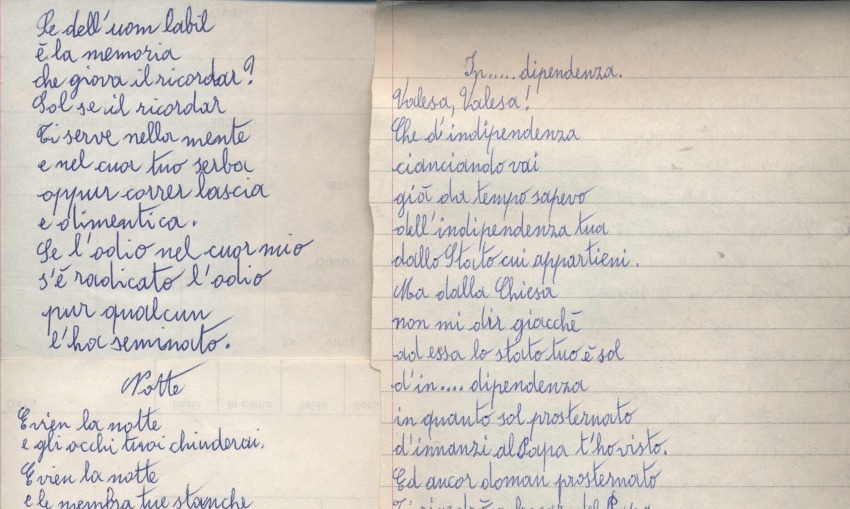 Se dell'uom labil
è la memoria
che giova il ricordar?
Sol se il ricordar
Ti serve nella mente
e nel cuor tuo serba
oppur correr lascia
e dimentica.
Se l'odio nel cuor mio
s'è radicato l'odio
pur qualcun
l'ha seminato.
Notte
E vien la notte
e gli occhi tuoi chiuderai.
E vien la notte
e le membra tue stanche
In..... dipendenza.
Valesa, Valesa!
Che d'indipendenza
cianciando vai
già da tempo sapevo
dell'indipendenza tua
dallo Stato cui appartieni.
Ma dalla Chiesa
non mi dir giacchè
ad essa lo stato tuo è sol
d'in.... dipendenza
in quanto sol prosternato
d'innanzi al Papa t'ho visto.
Ed ancor doman prosternato